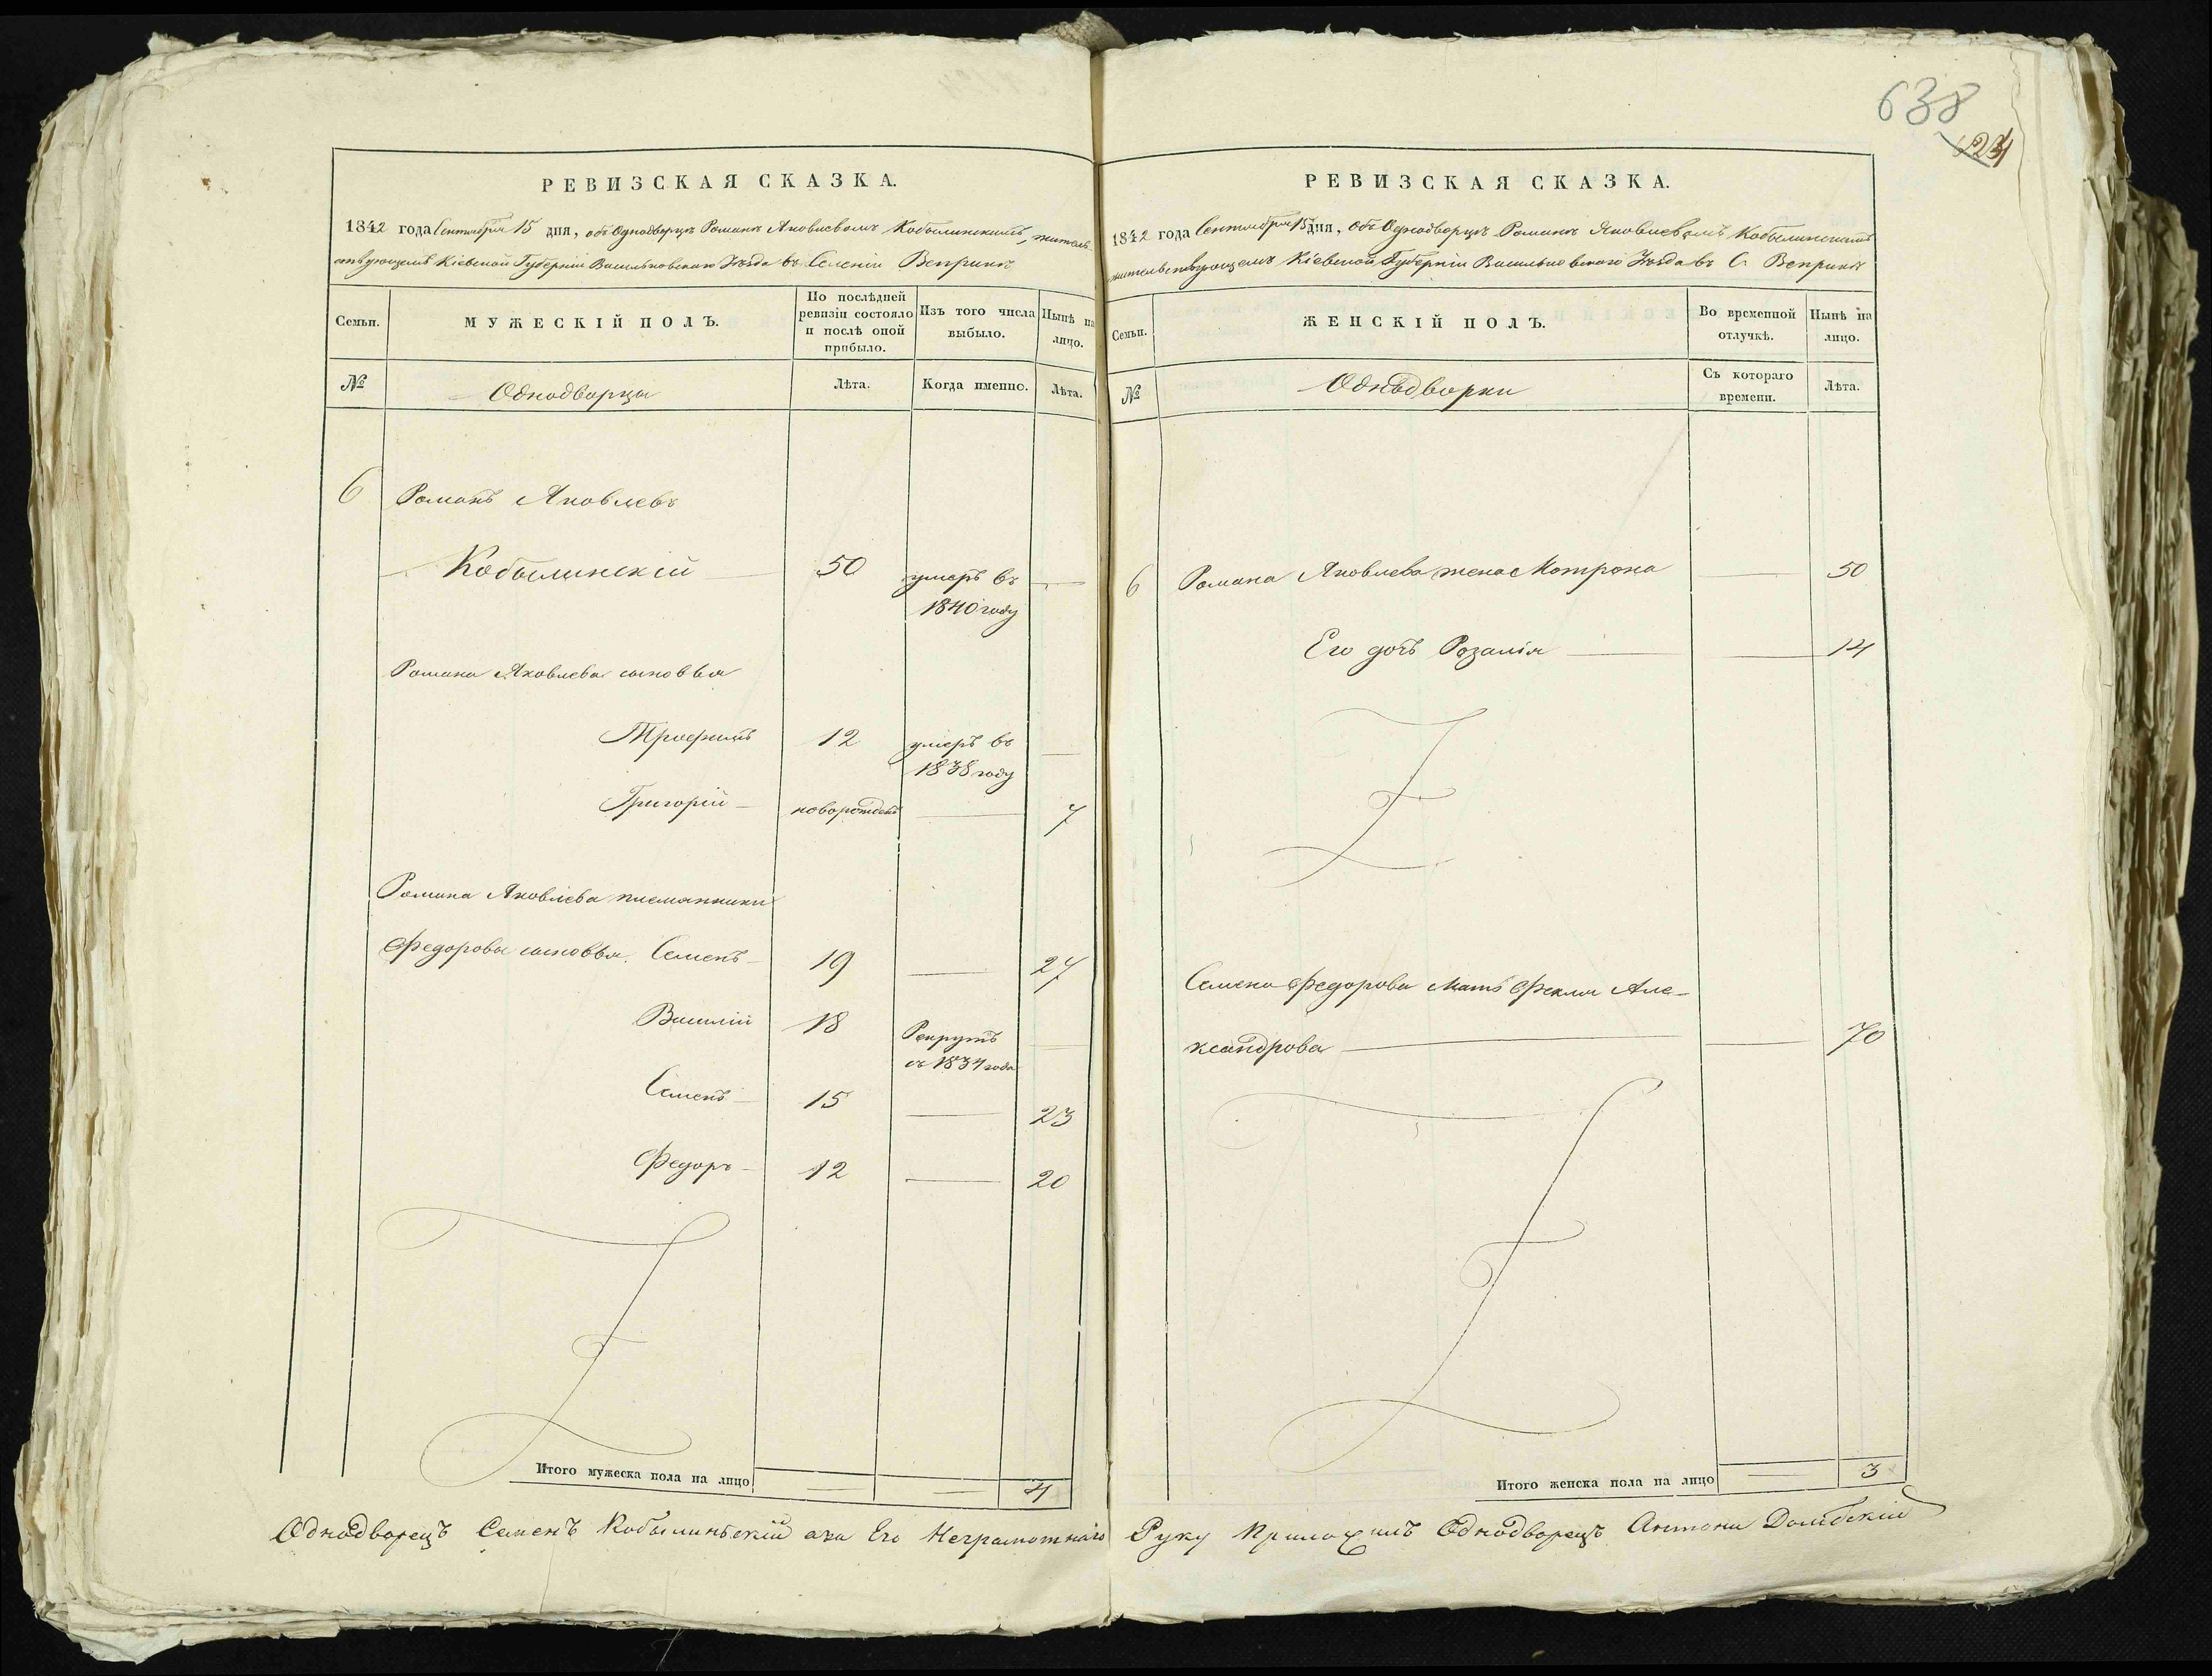 638
РЕВИЗСКАЯ СКАЗКА.
1842 года Сентября 15 дня, объ Однодворцѣ Романѣ Яковлевомъ Кобылинскимъ, житель-
ствующемъ Кіевской Губерніи Васильковскаго Уѣзда въ Селеніи Веприкѣ
Семьи.
МУЖЕСКІЙ ПОЛЪ.
По послѣдней ревизіи состояло и послѣ оной прибыло.
Изъ того числа выбыло.
Нынѣ на лицо.
№
Однодворцы
Лѣта.
Когда именно.
Лѣта.
6 Романъ Яковлевъ
Кобылинскій 50 умеръ въ —
1840 году
Романа Яковлева сыновья
Трофимъ 12 умеръ въ —
1838 году
Григорій — новорожденъ — 7
Романа Яковлева племянники
Федоровы сыновья. Семенъ — 19 — 27
Василій 18 Рекрутъ —
съ 1834 года
Семенъ — 15 — 23
Федоръ — 12 — 20
Итого мужеска пола на лицо — — 4
РЕВИЗСКАЯ СКАЗКА.
1842 года Сентября 15 дня, объ Однодворцѣ Романѣ Яковлевомъ Кобылинскимъ
жительствующемъ Кіевской Губерніи Васильковскаго Уѣзда въ С. Веприкѣ
Семьи.
ЖЕНСКІЙ ПОЛЪ.
Во временной отлучкѣ.
Нынѣ на лицо.
№
Однодворки
Съ котораго времени.
Лѣта.
6 Романа Яковлева жена Мотрона — 50
Его дочь Розалія — — 14
Семена Федорова Мать Фекла Але-
ксандрова — — 70
Итого женска пола на лицо — 3
Однодворецъ Семенъ Кобылиньскій ака Его Неграмотнаго Руку Приложилъ Однодворецъ Антони Домбскій